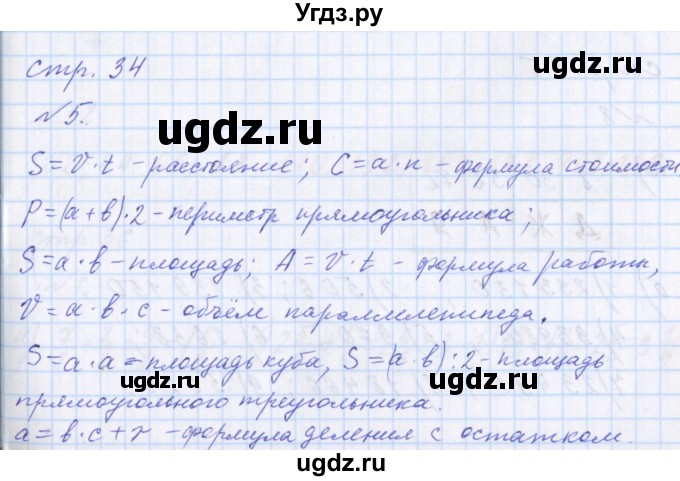 Угдз.ру
стр. 34
ugdz.ru
№5.
ugdz.ru
S = v · t – расстояние; C = a · n – формула стоимости,
P = (a + b) · 2 – периметр прямоугольника;
S = a · b – площадь; A = v · t – формула работы,
ugdz.ru ugdz.ru
V = a · b · c – объём параллелепипеда.
S = a · a – площадь куба, S = (a · b) : 2 – площадь
ugdz.ru
прямоугольного треугольника.
a = b · c + r – формула деления с остатком.
ugdz.ru